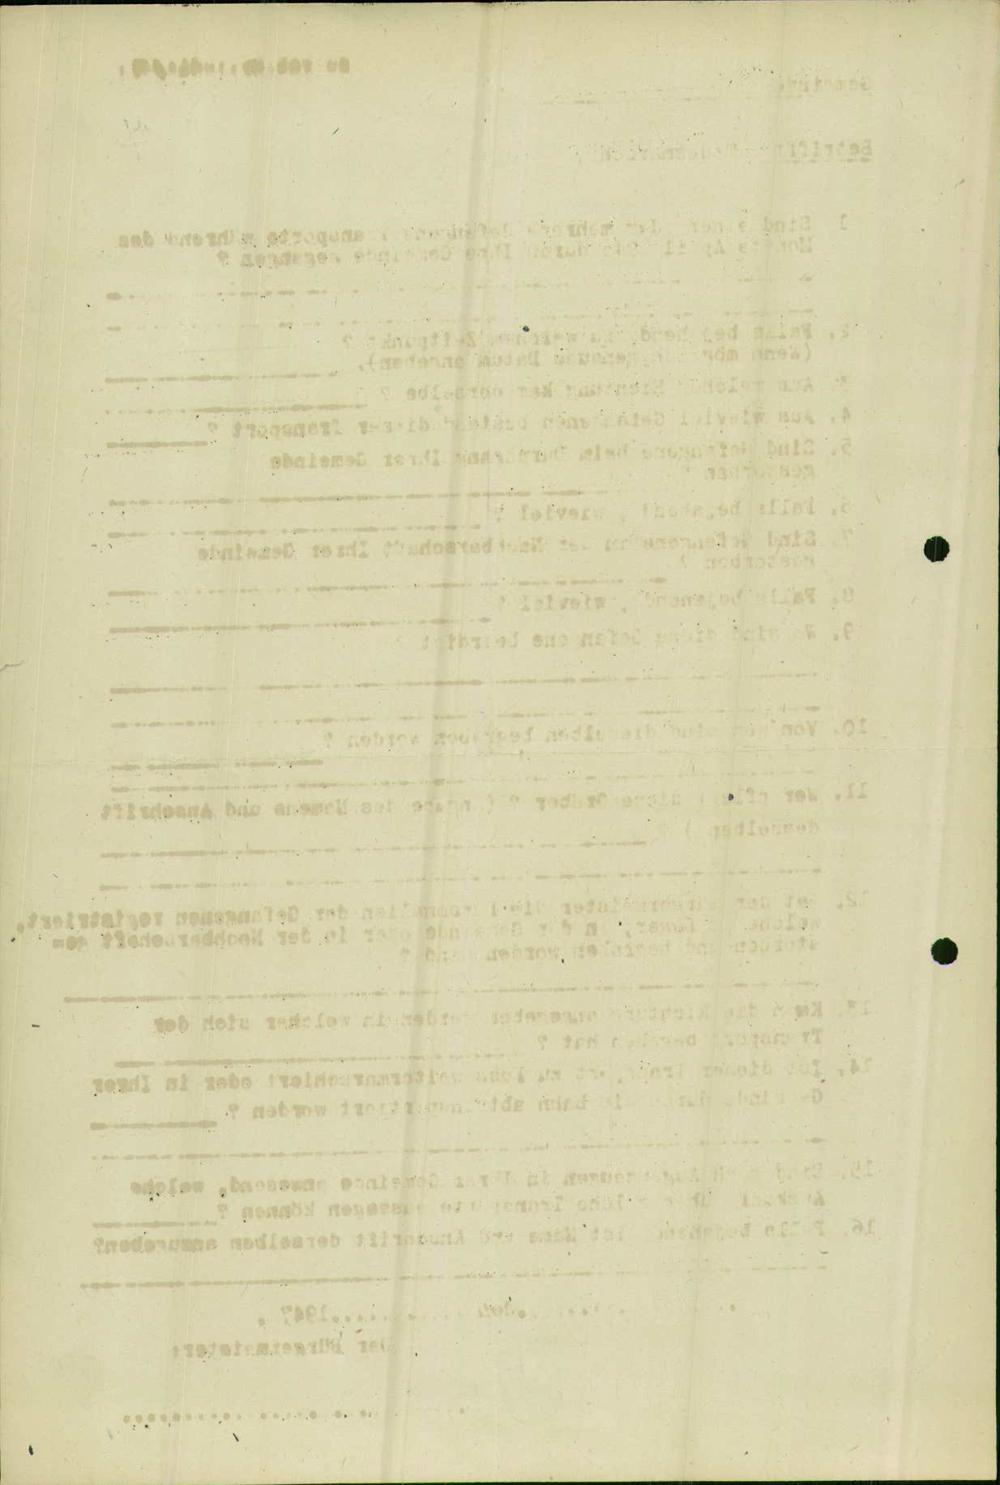 Gemeinde
Betrifft:
1. Sind einer oder mehrere Gefangenen Transporte während des
Monats April 1945 durch Ihre Gemeinde gegangen ?
2. Falls bejahend, zu welchem Zeitpunkt ?
(Wenn möglich genaues Datum angeben).
3. Aus welcher Richtung kam derselbe ?
4. Aus wieviel Gefangenen bestand dieser Transport ?
5. Sind Gefangene beim Durchgang Ihrer Gemeinde
gestorben ?
6. Falls bejahend, wieviel ?
7. Sind Gefangene in der Nachbarschaft Ihrer Gemeinde
gestorben ?
8. Falls bejahend, wieviel ?
9. Wo sind diese Gefangene beerdigt ?
10. Von wem sind dieselben begraben worden ?
11. Wer pflegt diese Gräber ? (Angabe des Namens und Anschrift
desselben )
12. Hat der Bürgermeister die Personalien der Gefangenen registriert,
welche in Ihrer, in der Gemeinde oder in der Nachbarschaft ges=
storben und begraben worden sind ?
13. Kann die Richtung angegeben werden in welcher sich der
Transport begeben hat ?
14. Ist dieser Transport zu Fuss weitermarschiert oder in Ihrer
Gemeinde durch die Bahn abtransportiert worden ?
15. Sind noch Augenzeugen in Ihrer Gemeinde anwesend, welche
Auskunft über solche Transporte aussagen können ?
16. Falls bejahend ist Name und Anschrift derselben anzugeben?
den 1947 .
Der Bürgermeister: